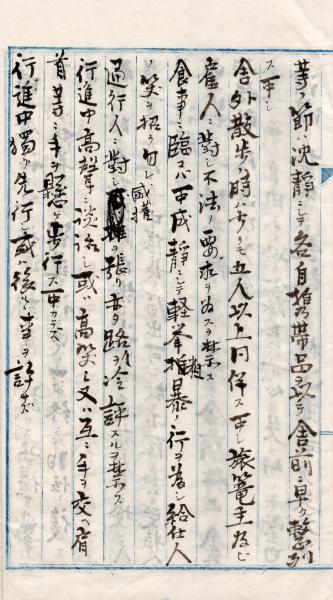 等ノ節ハ沈静ニシテ各自携帯品ヲ以テ舎前ニ早ク整列
ス可シ
舎外散歩ノ時ハ少クモ五人以上同伴ス可シ旅篭主及ビ
雇人ニ対シ不法ノ要求ヲ為スヲ禁ス
食事ニ臨ハ可成静ニシテ軽挙粗暴ノ行ヲ為シ給仕人
ノ笑ヲ招ク勿レ
通行人ニ対シ威権ヲ張リ亦タ路ヲ冷評スルヲ禁ス
行進中高聲ニ談話シ或ハ高笑シ又ハ互ニ手ヲ交ヘ肩
首等ニ手ヲ懸ケ歩行ス可カラス
行進中獨リ先行シ或ハ後ルゝ事ヲ許サズ